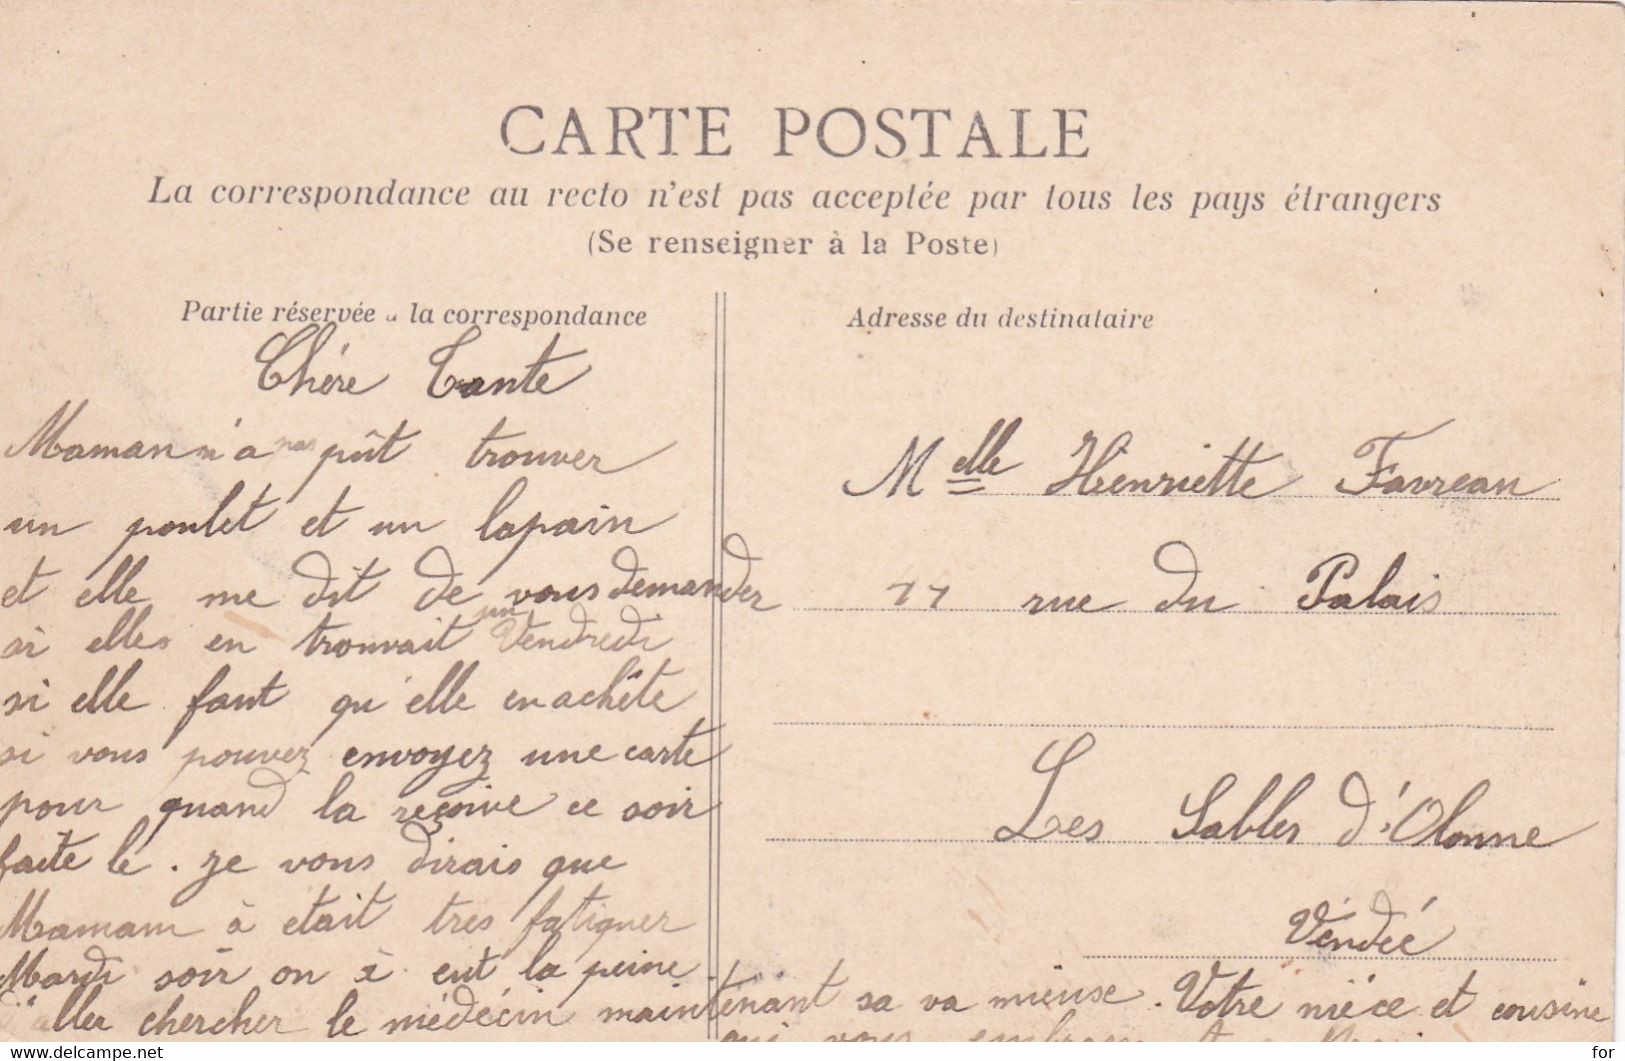 CARTE POSTALE
La correspondance au recto n'est pas acceptée par tous les pays étrangers
(Se renseigner à la Poste)
Partie réservée à la correspondance
Chére Tante
Maman n'a pas pût trouver
un poulet et un lapain
et elle me dit de vous demander
si elles en trouvait un Vendredi
si elle faut qu'elle en achête
si vous pouvez envoyez une carte
pour quand la reçoive ce soir
faite lé. Je vous dirais que
Mamam à était tres fatiguer
Mardi soir on à eut la peine
d'aller chercher le médécin maintenant sa va mieuse. Votre niéce et cousine
qui vous embrasse
Adresse du destinataire
Melle Henriette Favreau
77 rue du Palais
Les Sables d'Olonne
Véndée
www.delcampe.net
for